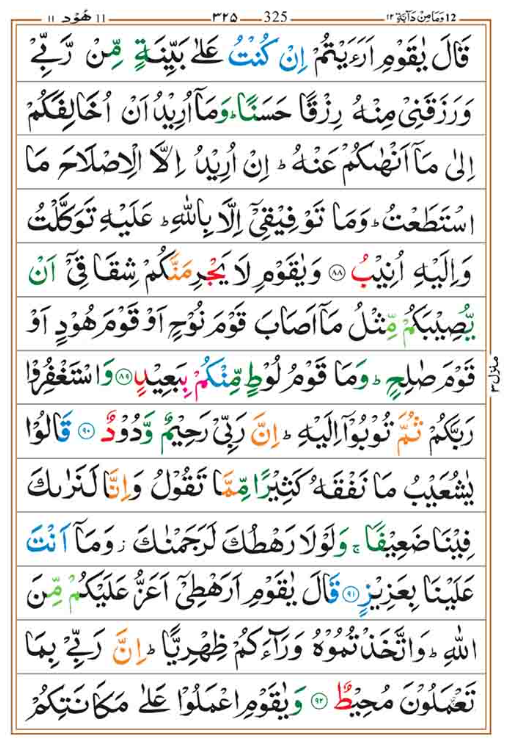 ١٢ وَمَا مِنْ دَآبَّةٍ 12 325 ٣٢٥ هُوْد ١١ 11
قَالَ يٰقَوْمِ اَرَءَيْتُمْ اِنْ كُنْتُ عَلٰى بَيِّنَةٍ مِّنْ رَّبِّىْ
وَرَزَقَنِىْ مِنْهُ رِزْقًا حَسَنًا ؕ وَمَاۤ اُرِيْدُ اَنْ اُخَالِفَكُمْ
اِلٰى مَاۤ اَنْهٰٮكُمْ عَنْهُ ؕ اِنْ اُرِيْدُ اِلَّا الْاِصْلَاحَ مَا
اسْتَطَعْتُ ؕ وَمَا تَوْفِيْقِىْۤ اِلَّا بِاللّٰهِ ؕ عَلَيْهِ تَوَكَّلْتُ
وَاِلَيْهِ اُنِيْبُ ۝۸۸ وَيٰقَوْمِ لَا يَجْرِمَنَّكُمْ شِقَاقِىْۤ اَنْ
يُّصِيْبَكُمْ مِّثْلُ مَاۤ اَصَابَ قَوْمَ نُوْحٍ اَوْ قَوْمَ هُوْدٍ اَوْ
قَوْمَ صٰلِحٍ ؕ وَمَا قَوْمُ لُوْطٍ مِّنْكُمْ بِبَعِيْدٍ ۝۸۹ وَاسْتَغْفِرُوْا
رَبَّكُمْ ثُمَّ تُوْبُوْۤا اِلَيْهِ ؕ اِنَّ رَبِّىْ رَحِيْمٌ وَّدُوْدٌ ۝۹۰ قَالُوْا
يٰشُعَيْبُ مَا نَفْقَهُ كَثِيْرًا مِّمَّا تَقُوْلُ وَاِنَّا لَنَرٰٮكَ
فِيْنَا ضَعِيْفًا ۚ وَلَوْلَا رَهْطُكَ لَرَجَمْنٰكَ ؗ وَمَاۤ اَنْتَ
عَلَيْنَا بِعَزِيْزٍ ۝۹۱ قَالَ يٰقَوْمِ اَرَهْطِىْۤ اَعَزُّ عَلَيْكُمْ مِّنَ
اللّٰهِ ؕ وَاتَّخَذْتُمُوْهُ وَرَآءَكُمْ ظِهْرِيًّا ؕ اِنَّ رَبِّىْ بِمَا
تَعْمَلُوْنَ مُحِيْطٌ ۝۹۲ وَيٰقَوْمِ اعْمَلُوْا عَلٰى مَكَانَتِكُمْ
منزل ٣